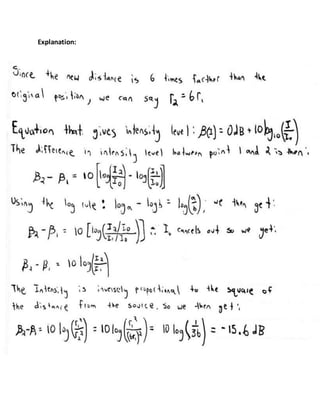 Explanation:
Since the new distance is 6 times farther than the
original position, we can say r₂ = 6r₁
Equation that gives intensity level: β(I) = 0dB + 10log₁₀(I/I₀)
The difference in intensity level between point 1 and 2 is then:
β₂ - β₁ = 10[log(I₂/I₀) - log(I₁/I₀)]
Using the log rule: loga - logb = log(a/b); we then get:
β₂ - β₁ = 10[log((I₂/I₀)/(I₁/I₀))] ∴ I₀ cancels out so we get:
β₂ - β₁ = 10 log(I₂/I₁)
The Intensity is inversely proportional to the square of
the distance from the source. So we then get:
β₂-β₁ = 10 log(r₁²/r₂²) = 10log(r₁²/(6r₁)²) = 10 log(1/36) = -15.6 dB